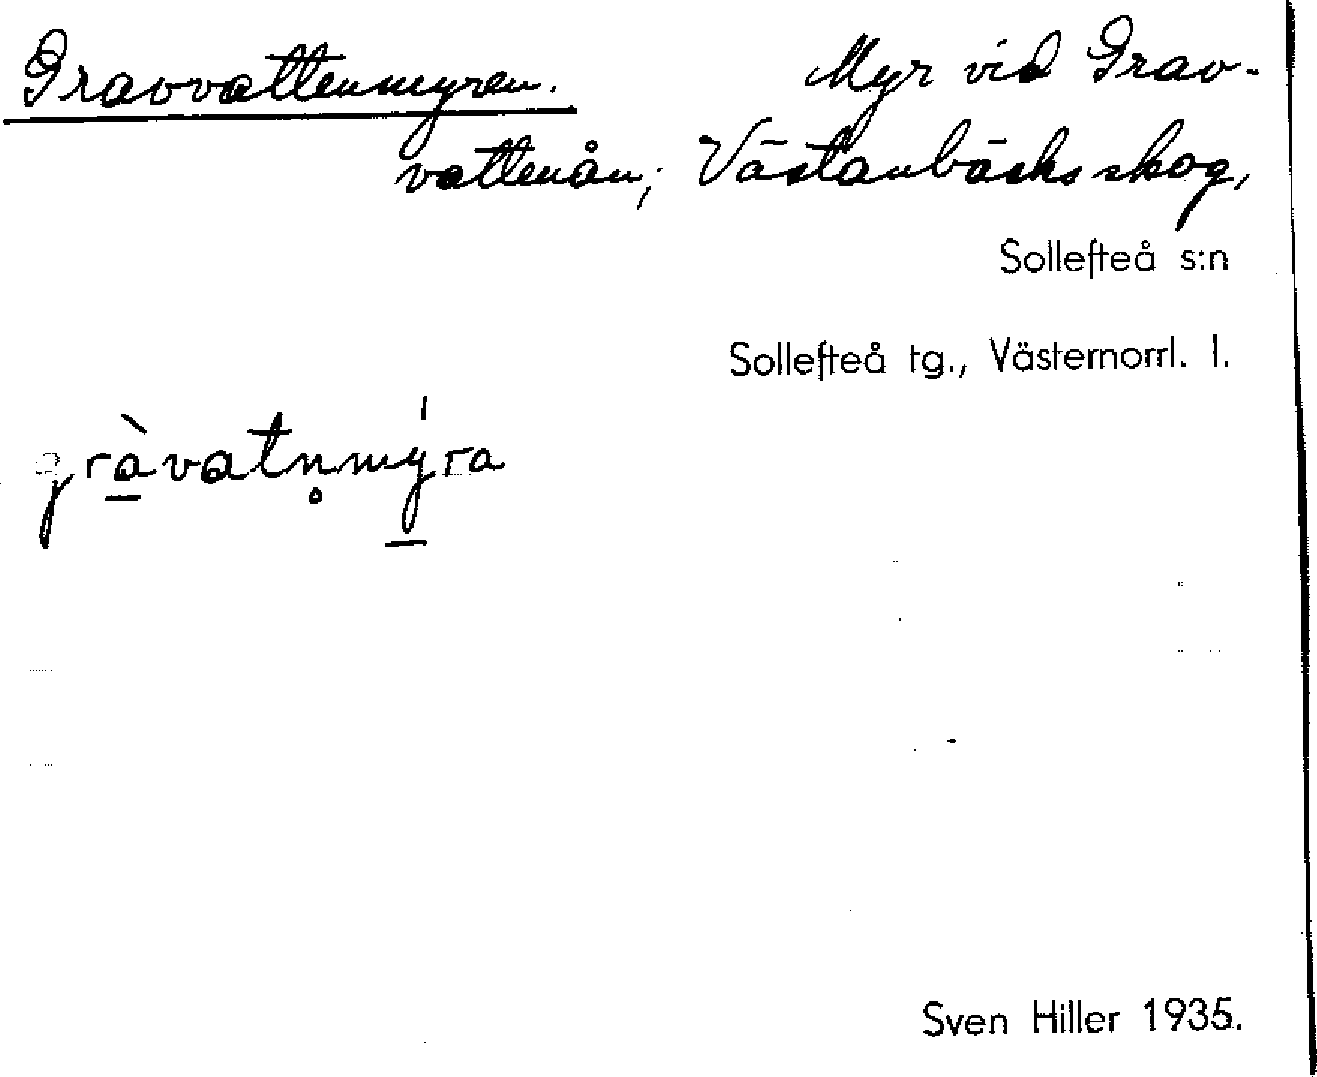 Gravvattenmyren. Myr vid Grav-
vattenån; Västanbäcks skog,
Sollefteå s:n
Sollefteå tg., Västernorrl. l.
grà̱vatn̥mý̱ra
Sven Hiller 1935.